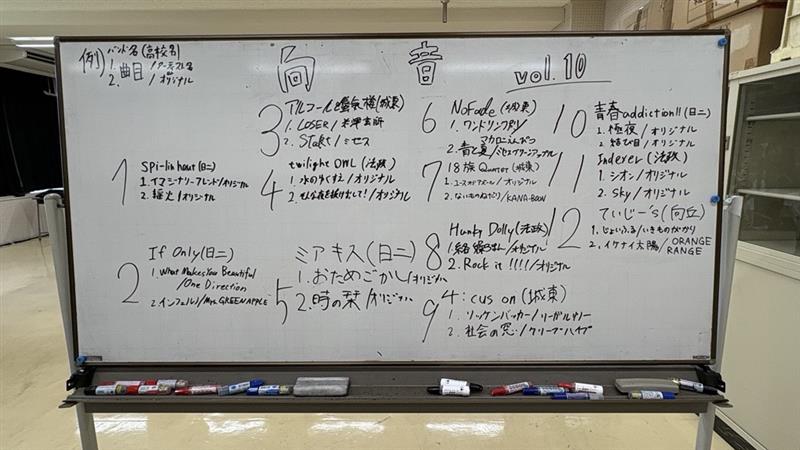 例) バンド名(高校名)
1. 曲目 / アーティスト名
2. / オリジナル
向 音 vol.10
1 Spi-lin hout (日二)
1. イマジナリーフレンド/オリジナル
2. /オリジナル
2 If Only(日二)
1. What Makes You Beautiful
/One Direction
2. インフェルノ/Mrs. GREEN APPLE
3 アルコール蒸気機(城東)
1. LOSER / 米津玄師
2. StaRt / ミセス
4 twilight OWL (法政)
1. 水のゆくすえ / オリジナル
2. /オリジナル
5 ミアキス(日二)
1. おためごかし/オリジナル
2. 時の栞/オリジナル
6 NoFade (城東)
1. ワンドリンク /
マカロニえんぴつ
2. 青と夏/ミセスグリーンアップル
7 18族 Quartet (城東)
1. /オリジナル
2. ないものねだり/KANA-BOON
8 Hunky Dolly(法政)
1. /オリジナル
2. Rock it !!!!/オリジナル
9 4:cus on (城東)
1. リッケンバッカー/リーガルリリー
2. 社会の窓/クリープハイプ
10 青春addiction!!(日二)
1. 極夜/オリジナル
2. 結び目/オリジナル
11 Indexer (法政)
1. シオン/オリジナル
2. Sky/オリジナル
12 てぃじー's(向丘)
1. じょいふる/いきものがかり
2. イケナイ太陽/ORANGE
RANGE